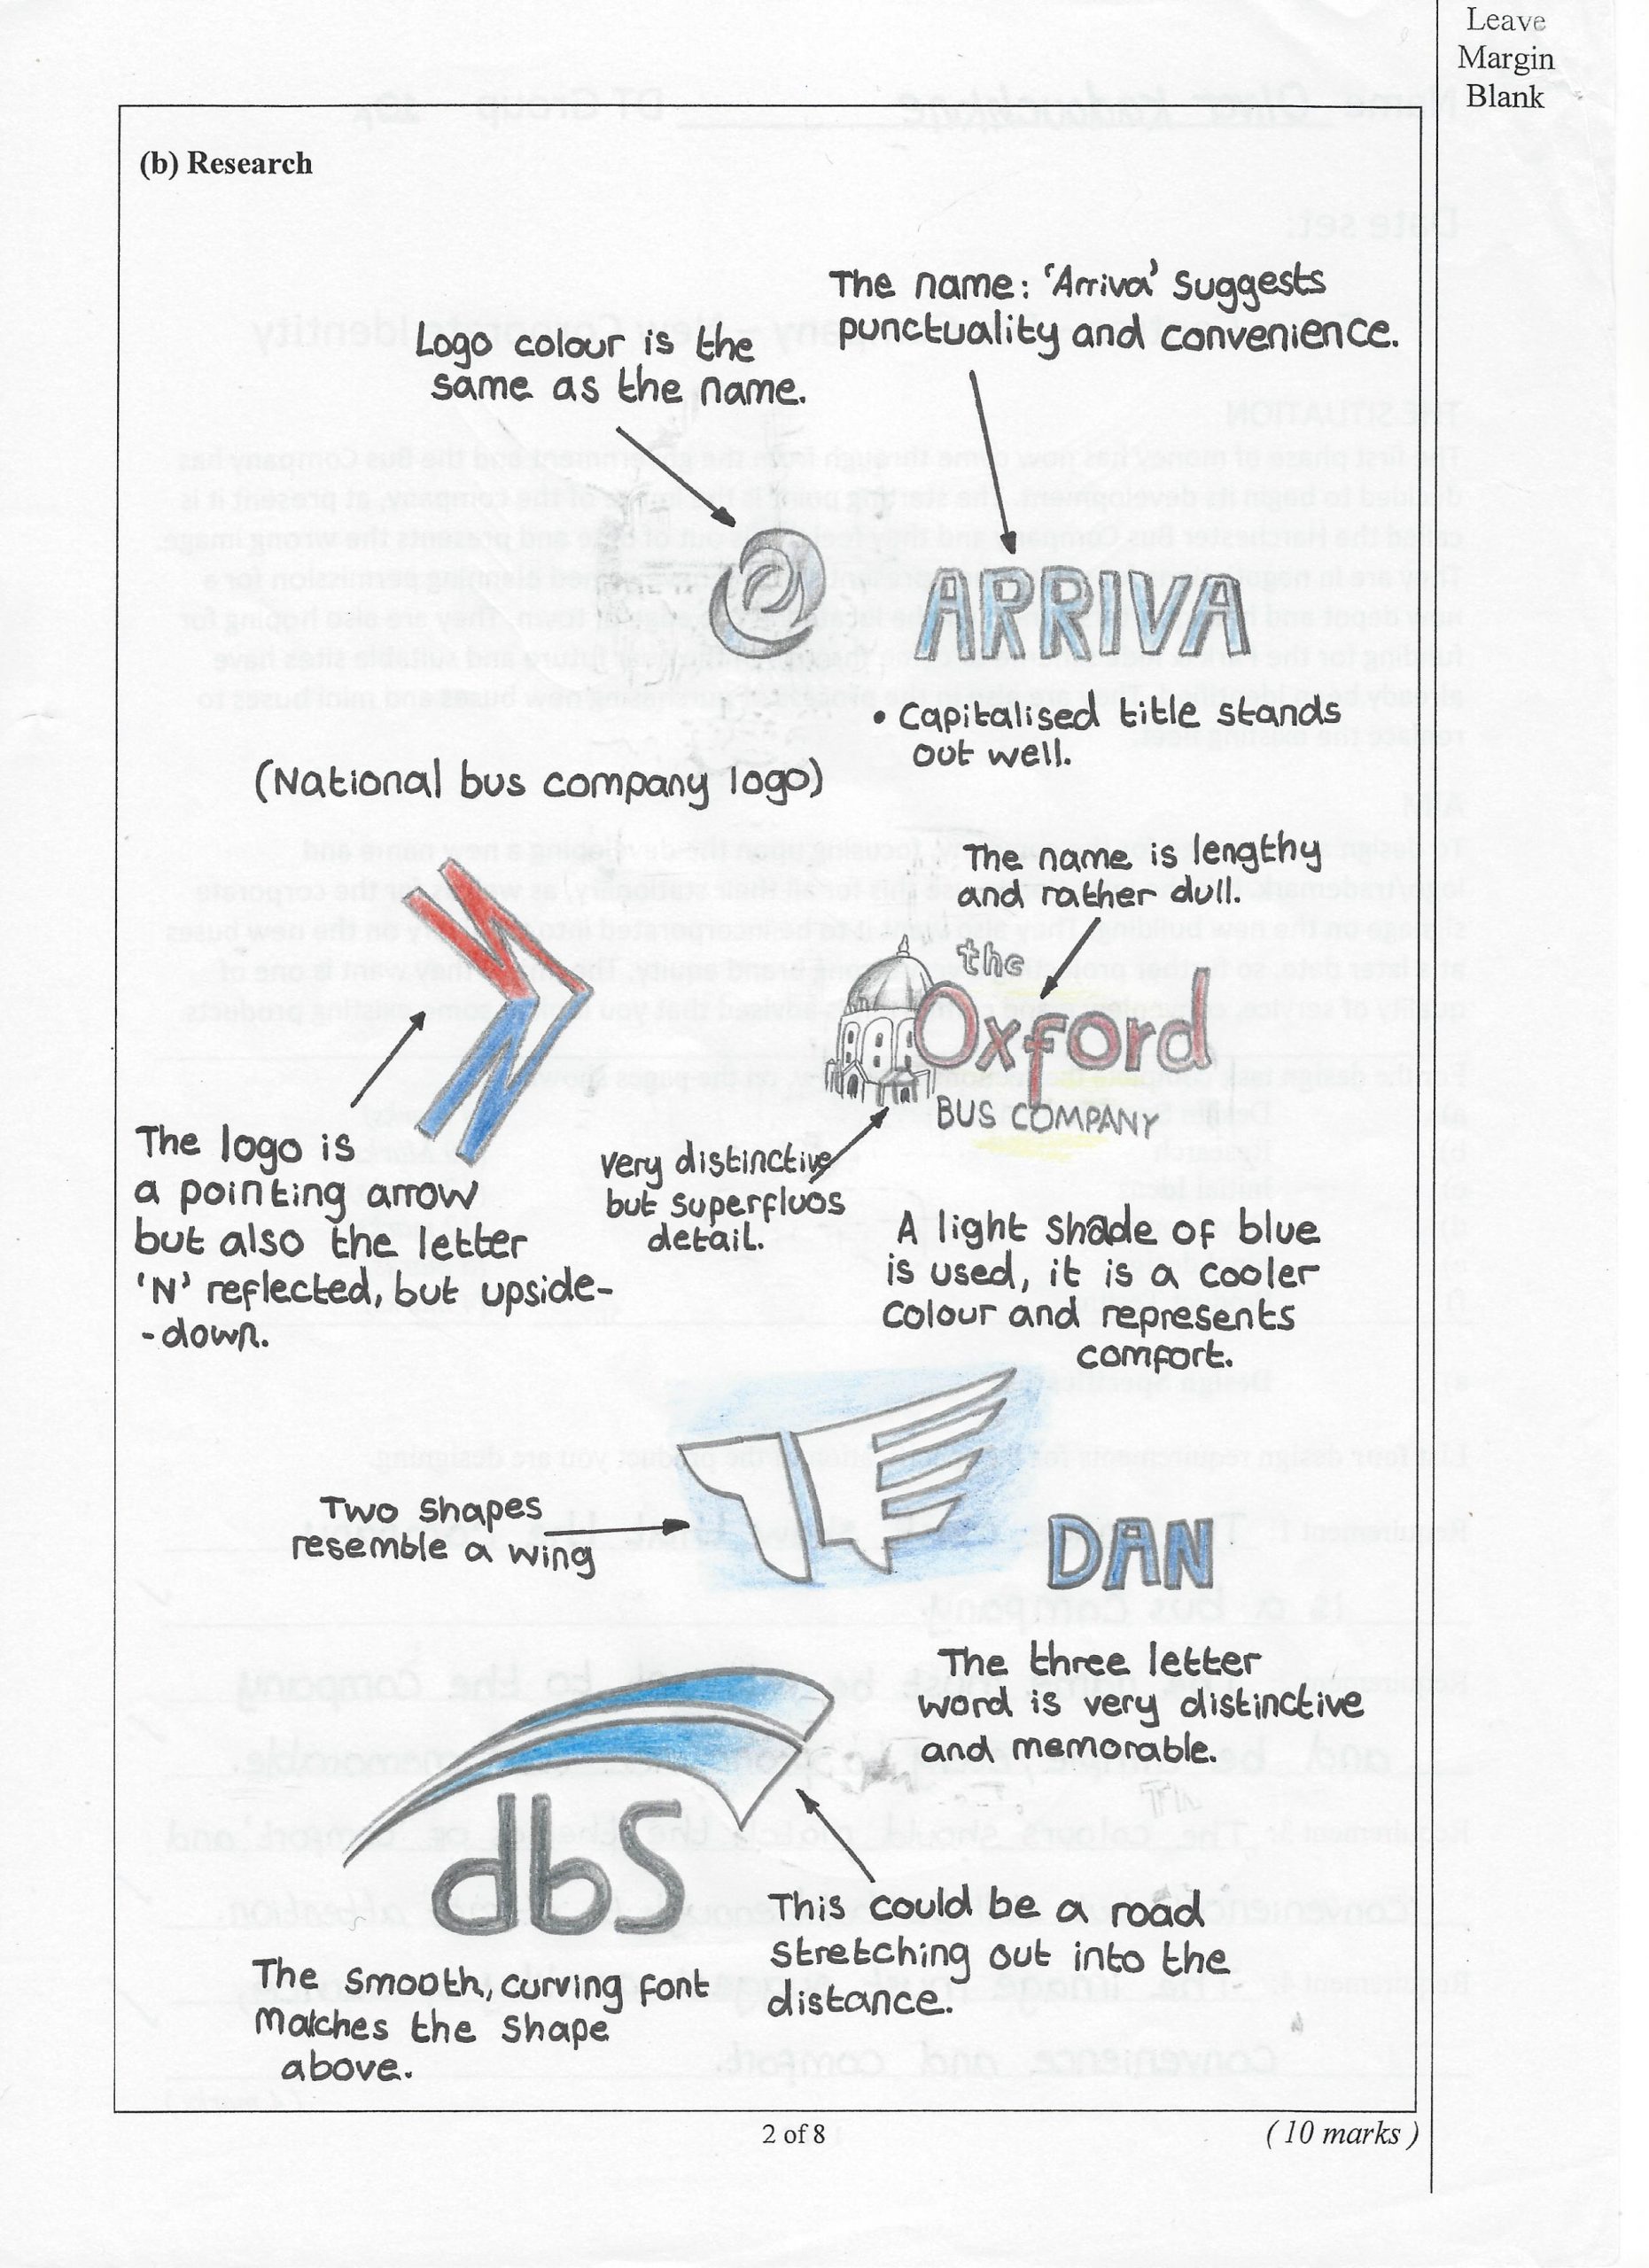 Leave
Margin
Blank
(b) Research
The name: 'Arriva' suggests
punctuality and convenience.
Logo colour is the
same as the name.
ARRIVA
• Capitalised title stands
out well.
(National bus company logo)
The name is lengthy
and rather dull.
the
Oxford
BUS COMPANY
The logo is
a pointing arrow
but also the letter
'N' reflected, but upside-
-down.
very distinctive
but superfluos
detail.
A light shade of blue
is used, it is a cooler
colour and represents
comfort.
Two shapes
resemble a wing
DAN
The three letter
word is very distinctive
and memorable.
dbS
This could be a road
stretching out into the
distance.
The smooth, curving font
matches the shape
above.
2 of 8
(10 marks)